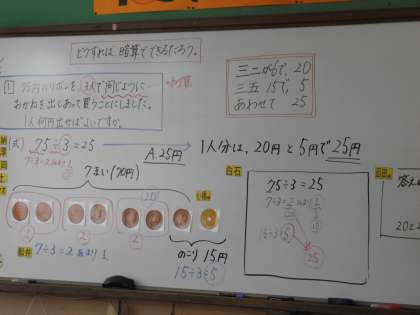 どうすれば、暗算でできるだろう。
1 75円のリボンを3人で同じように
おかねを出しあって買うことにしました。
1人何円出せばよいですか。
わり算
三二が6で、20
三五15で、5
あわせて 25
(式) 75÷3=25
7÷3=2あまり1
A.25円
1人分は、20円と5円で25円
7まい(70円)
2
2
2
のこり15円
15÷3=5
7÷3=2あまり1
白石
75÷3=25
7÷3=2
15÷3=5
25